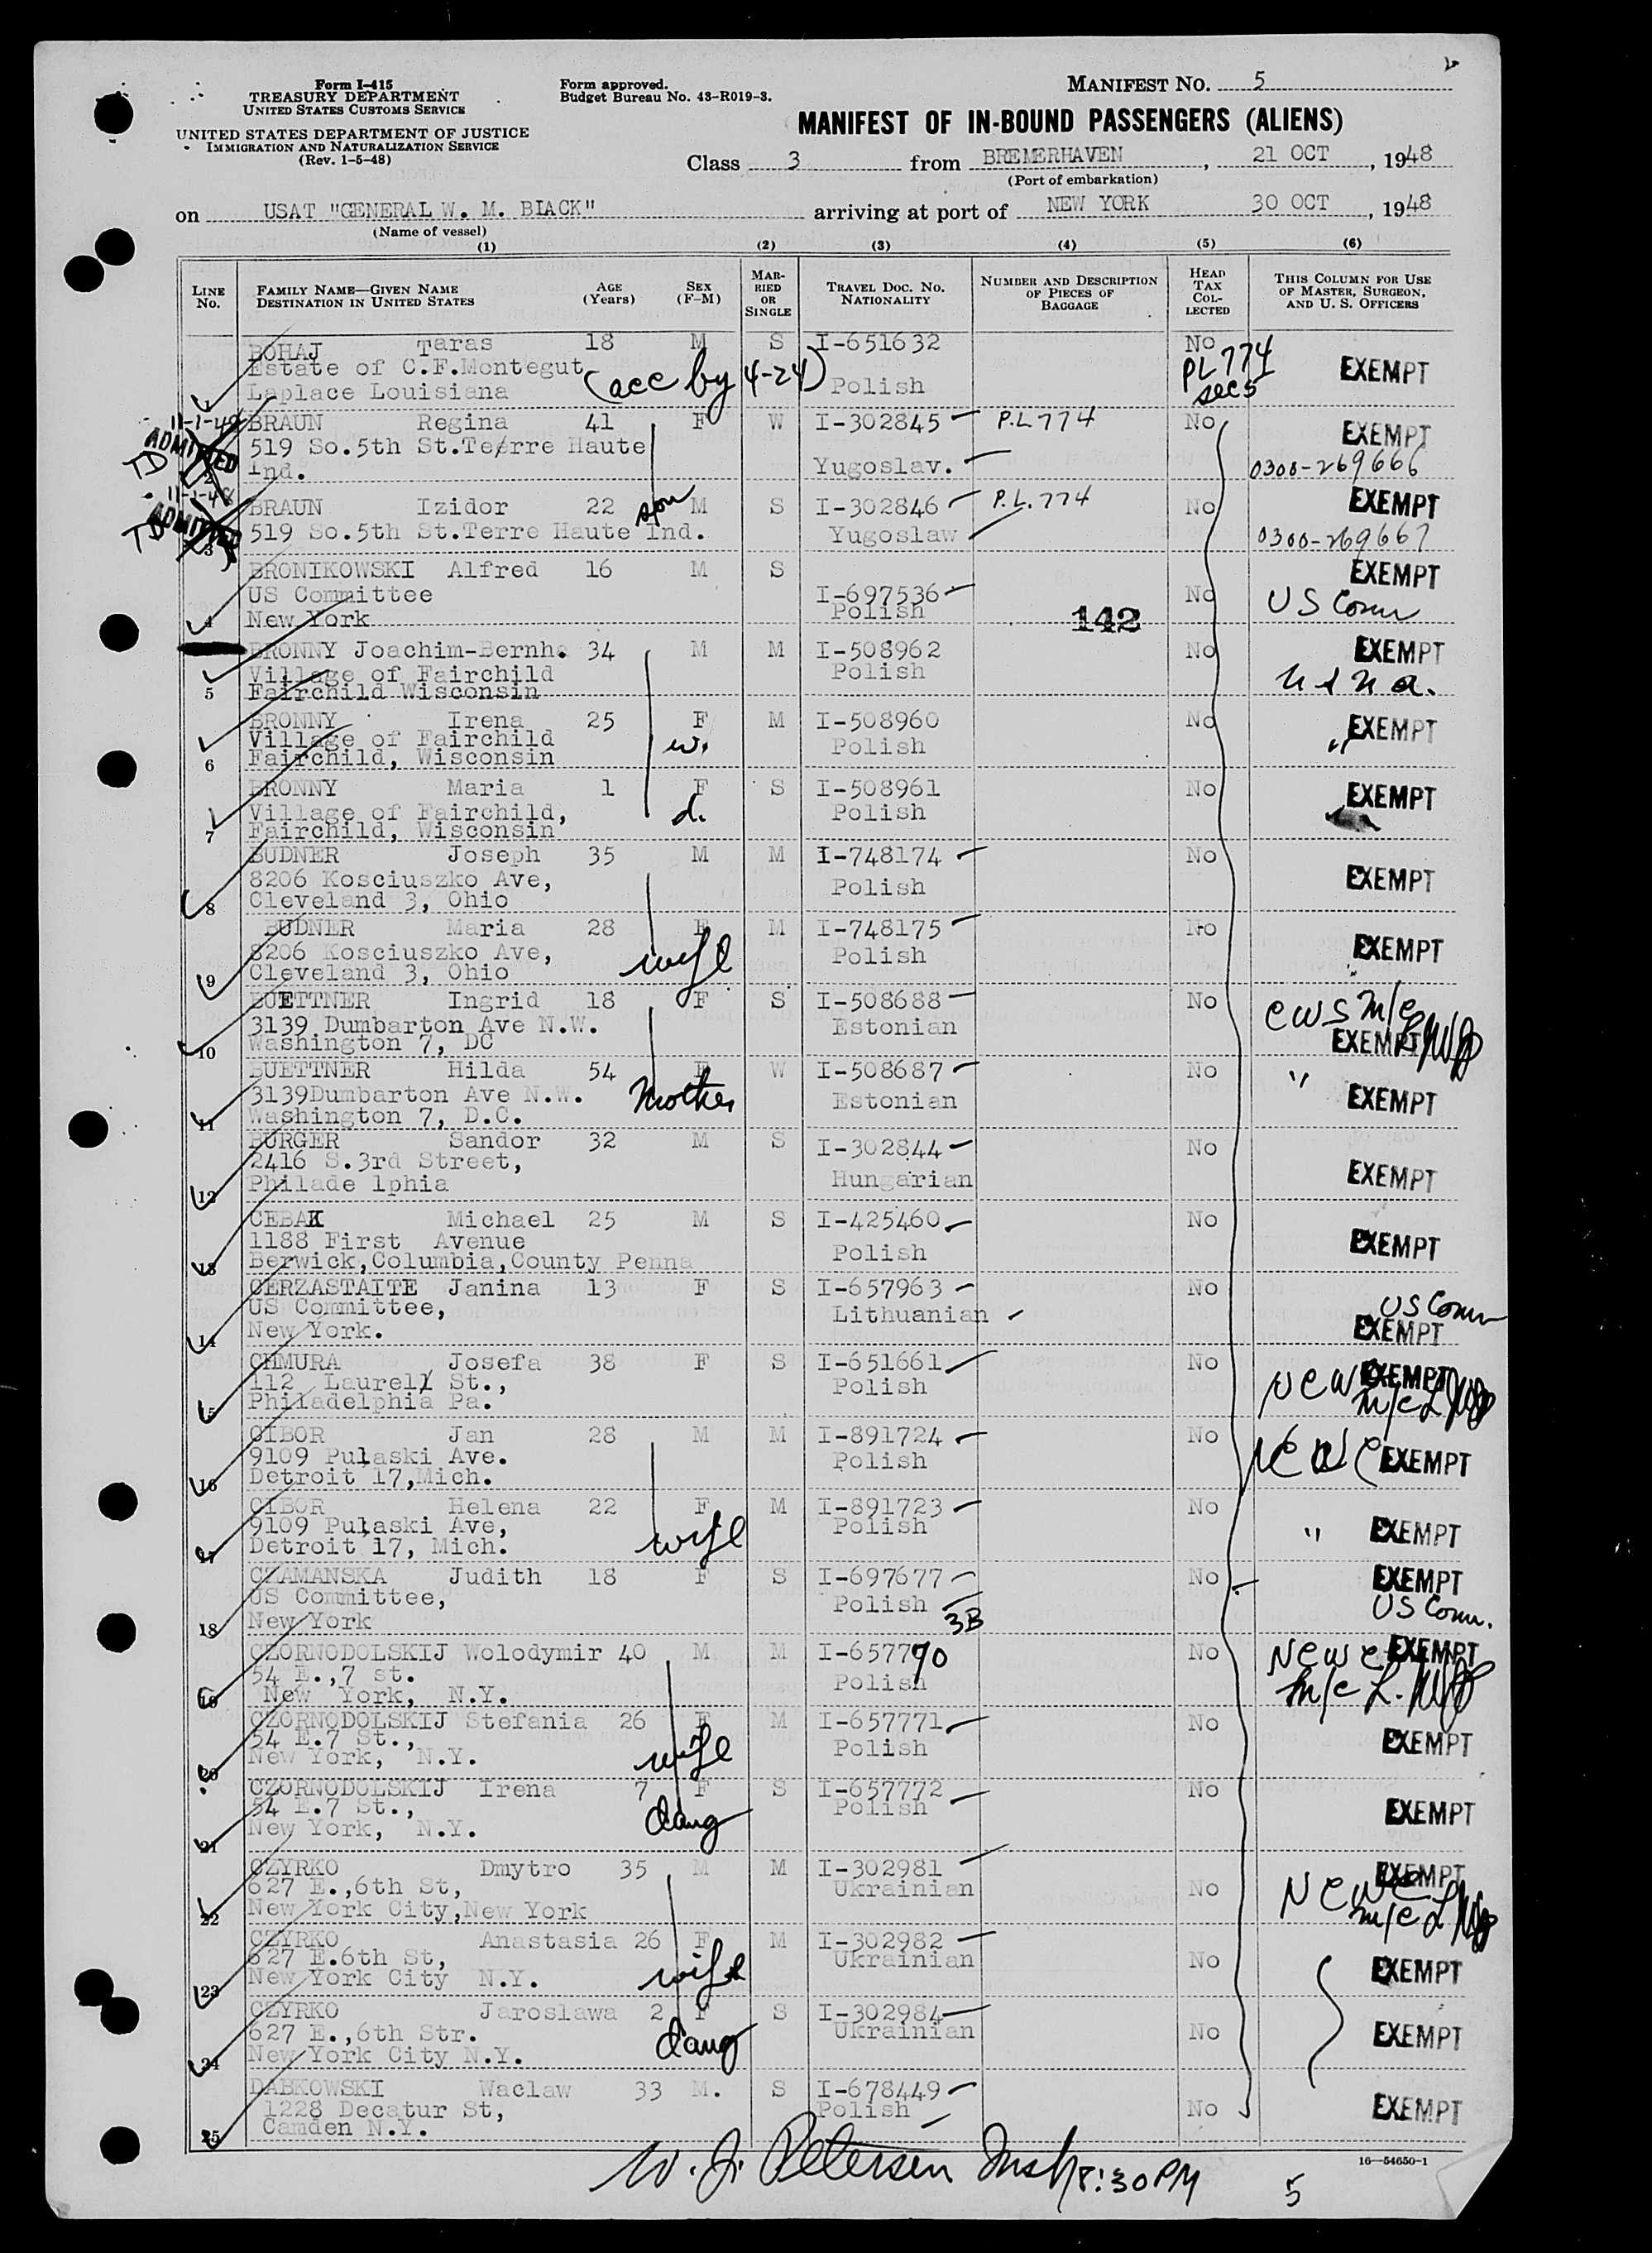 Form I-415
TREASURY DEPARTMENT
UNITED STATES CUSTOMS SERVICE
UNITED STATES DEPARTMENT OF JUSTICE
IMMIGRATION AND NATURALIZATION SERVICE
(Rev. 1-5-48)
Form approved.
Budget Bureau No. 43-R019-3.
MANIFEST NO. 5
MANIFEST OF IN-BOUND PASSENGERS (ALIENS)
Class 3 from BREMERHAVEN, 21 OCT, 1948
(Port of embarkation)
on USAT "GENERAL W. M. BLACK" arriving at port of NEW YORK 30 OCT, 1948
(Name of vessel)
(1) (2) (3) (4) (5) (6)
LINE No. FAMILY NAME—GIVEN NAME DESTINATION IN UNITED STATES AGE (Years) SEX (F-M) MARRIED OR SINGLE TRAVEL DOC. NO. NATIONALITY NUMBER AND DESCRIPTION OF PIECES OF BAGGAGE HEAD TAX COLLECTED THIS COLUMN FOR USE OF MASTER, SURGEON, AND U. S. OFFICERS
BOHAJ Taras 18 M S I-651632 No
Estate of C.F.Montegut (acc by 4-24) PL 774 EXEMPT
1 Laplace Louisiana Polish sec 5
11-1-48 BRAUN Regina 41 F W I-302845 P.L 774 No EXEMPT
ADMITTED 519 So.5th St.Terre Haute
TD 2 Ind. Yugoslav. 0300-269666
11-1-48 BRAUN Izidor 22 son M S I-302846 P.L. 774 No EXEMPT
ADMITTED TD 3 519 So.5th St.Terre Haute Ind. Yugoslaw 0300-269667
BRONIKOWSKI Alfred 16 M S EXEMPT
US Committee I-697536 No US Comm
4 New York Polish 142
BRONNY Joachim-Bernh. 34 M M I-508962 No EXEMPT
Village of Fairchild Polish
5 Fairchild Wisconsin
BRONNY Irena 25 F M I-508960 No EXEMPT
Village of Fairchild w. Polish "
6 Fairchild, Wisconsin
BRONNY Maria 1 F S I-508961 No EXEMPT
Village of Fairchild, d. Polish
7 Fairchild, Wisconsin
BUDNER Joseph 35 M M I-748174 No
8206 Kosciuszko Ave, Polish EXEMPT
8 Cleveland 3, Ohio
BUDNER Maria 28 F M I-748175 No
8206 Kosciuszko Ave, wife Polish EXEMPT
9 Cleveland 3, Ohio
BUETTNER Ingrid 18 F S I-508688 No CWS M/c
3139 Dumbarton Ave N.W. Estonian EXEMPT
10 Washington 7, DC
BUETTNER Hilda 54 F W I-508687 No "
3139Dumbarton Ave N.W. Mother Estonian EXEMPT
11 Washington 7, D.C.
BURGER Sandor 32 M S I-302844 No
2416 S.3rd Street,
12 Philade lphia Hungarian EXEMPT
CEBAK Michael 25 M S I-425460 No
1188 First Avenue Polish EXEMPT
13 Berwick,Columbia,County Penna
CERZASTAITE Janina 13 F S I-657963 No
US Committee, Lithuanian US Comm
14 New York. EXEMPT
CHMURA Josefa 38 F S I-651661 No EXEMPT
112 Laurell St., Polish NCWC
15 Philadelphia Pa. m/c
CIBOR Jan 28 M M I-891724 No
9109 Pulaski Ave. Polish NCWC EXEMPT
16 Detroit 17,Mich.
CIBOR Helena 22 F M I-891723 No
9109 Pulaski Ave, wife Polish " EXEMPT
17 Detroit 17, Mich.
CZAMANSKA Judith 18 F S I-697677 No EXEMPT
US Committee, Polish US Comm.
18 New York 3B
CZORNODOLSKIJ Wolodymir 40 M M I-657770 No NCWC EXEMPT
54 E.,7 st. Polish m/c
19 New York, N.Y.
CZORNODOLSKIJ Stefania 26 F M I-657771 No
54 E.7 St., wife Polish EXEMPT
20 New York, N.Y.
CZORNODOLSKIJ Irena 7 F S I-657772 No
54 E.7 St., daug Polish EXEMPT
21 New York, N.Y.
CZYRKO Dmytro 35 M M I-302981 EXEMPT
627 E.,6th St, Ukrainian No NCWC
22 New York City,New York m/c
CZYRKO Anastasia 26 F M I-302982
627 E.6th St, wife Ukrainian No EXEMPT
23 New York City N.Y.
CZYRKO Jaroslawa 2 F S I-302984
627 E.,6th Str. daug Ukrainian No EXEMPT
24 New York City N.Y.
DABKOWSKI Waclaw 33 M. S I-678449
1228 Decatur St, Polish No EXEMPT
25 Camden N.Y.
W. J. Petersen Insp 8:30 PM
16—54650-1
5